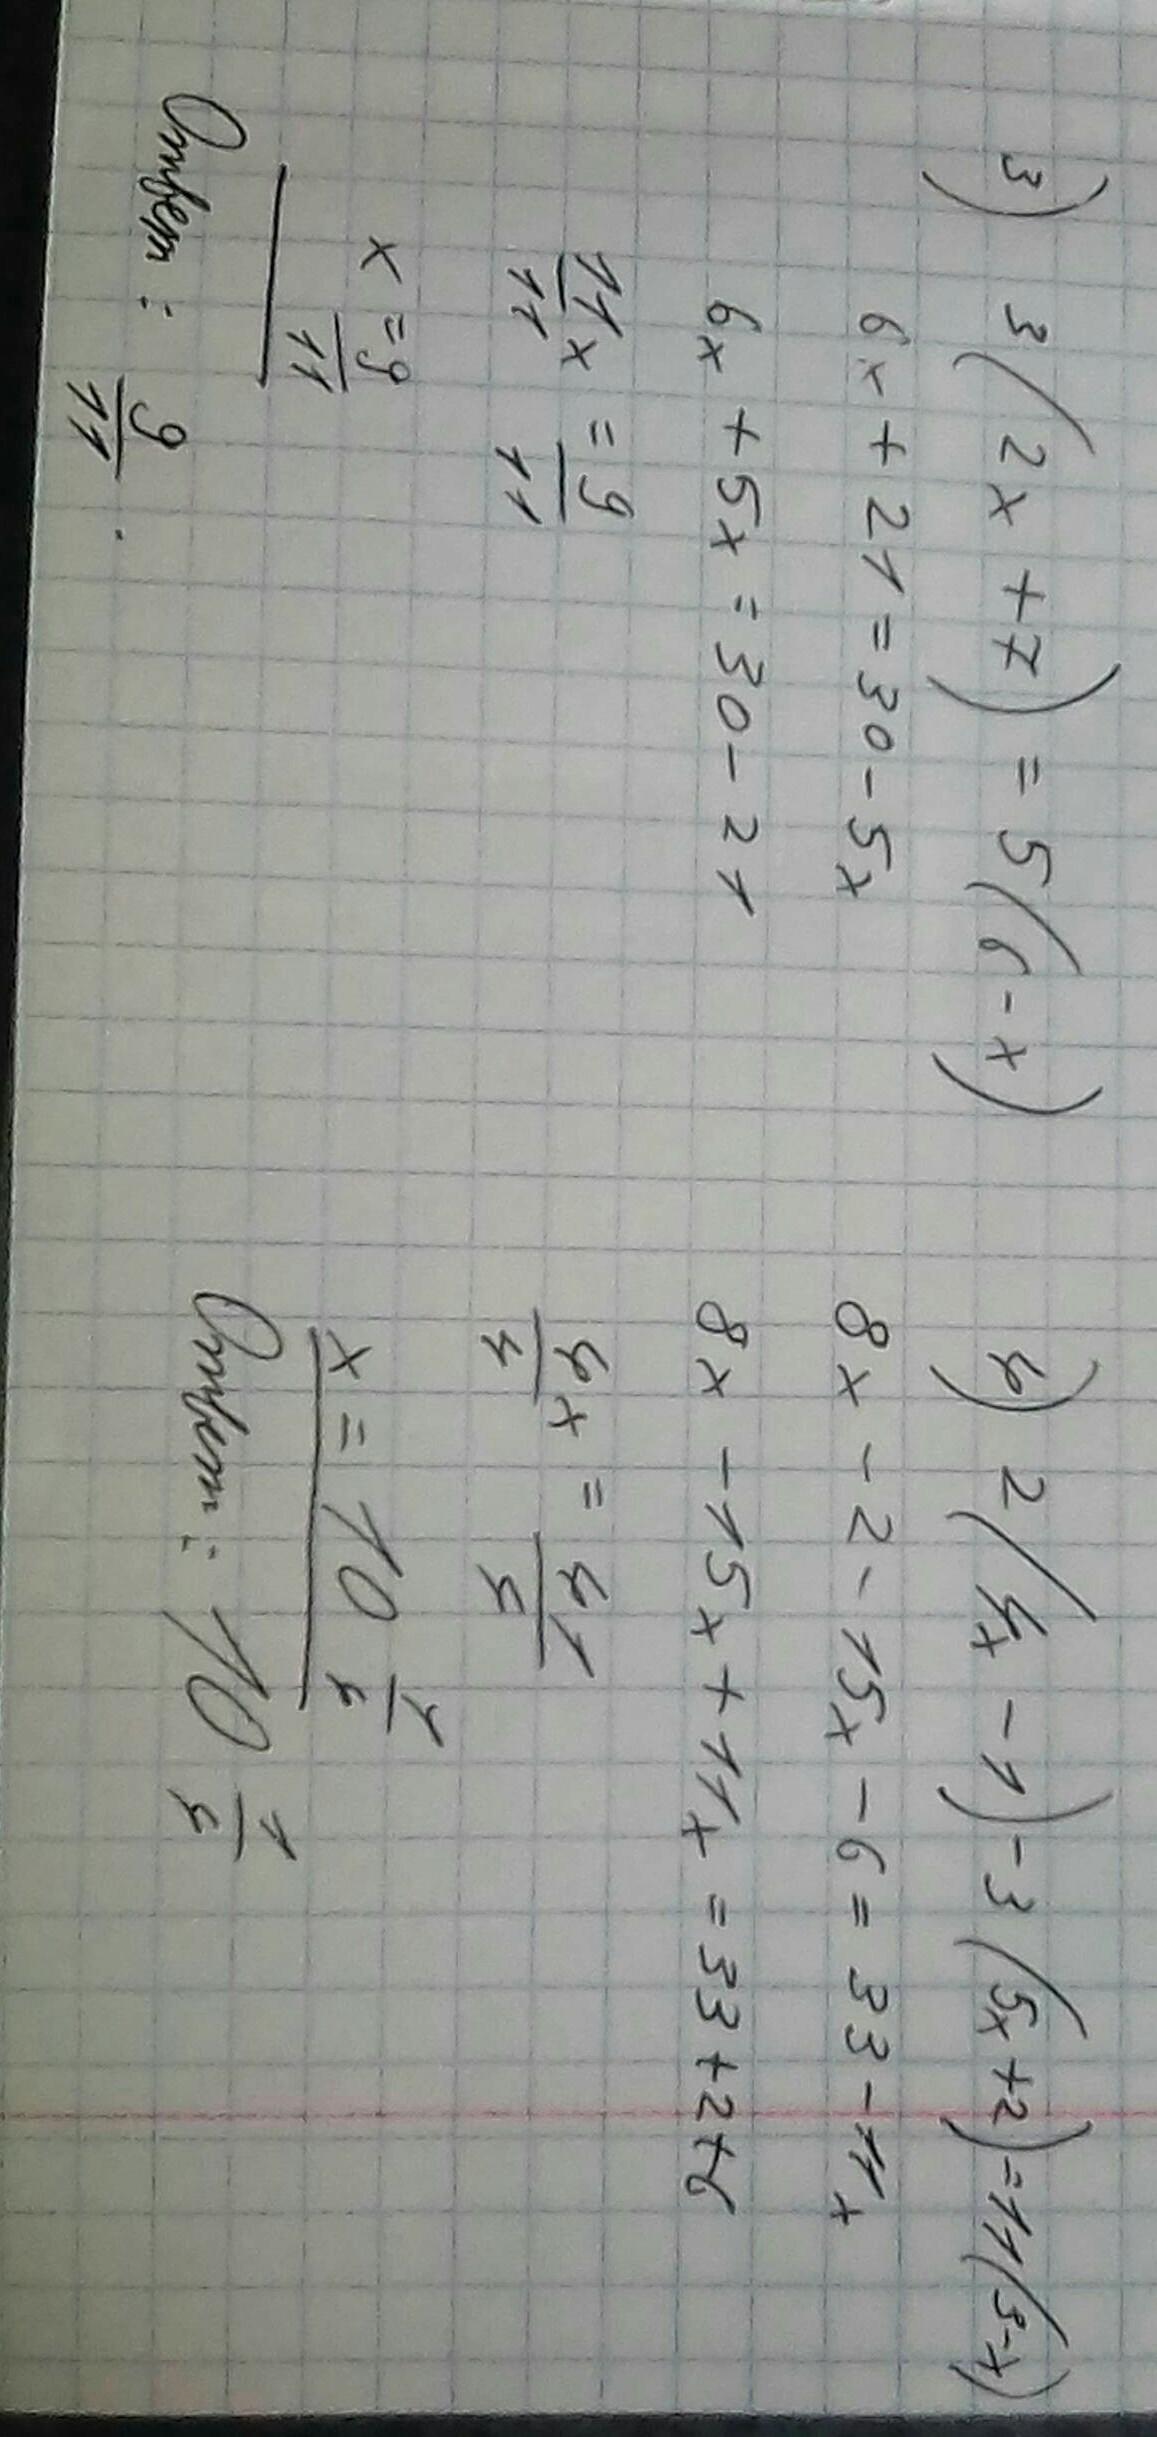 3) 3(2x+7)=5(6-x)
6x+21=30-5x
6x+5x=30-21
11x/11=9/11
x=9/11
Ответ: 9/11.
4) 2(4x-1)-3(5x+2)=11(3-x)
8x-2-15x-6=33-11x
8x-15x+11x=33+2+6
4x/4=41/4
x=10 1/4
Ответ: 10 1/4